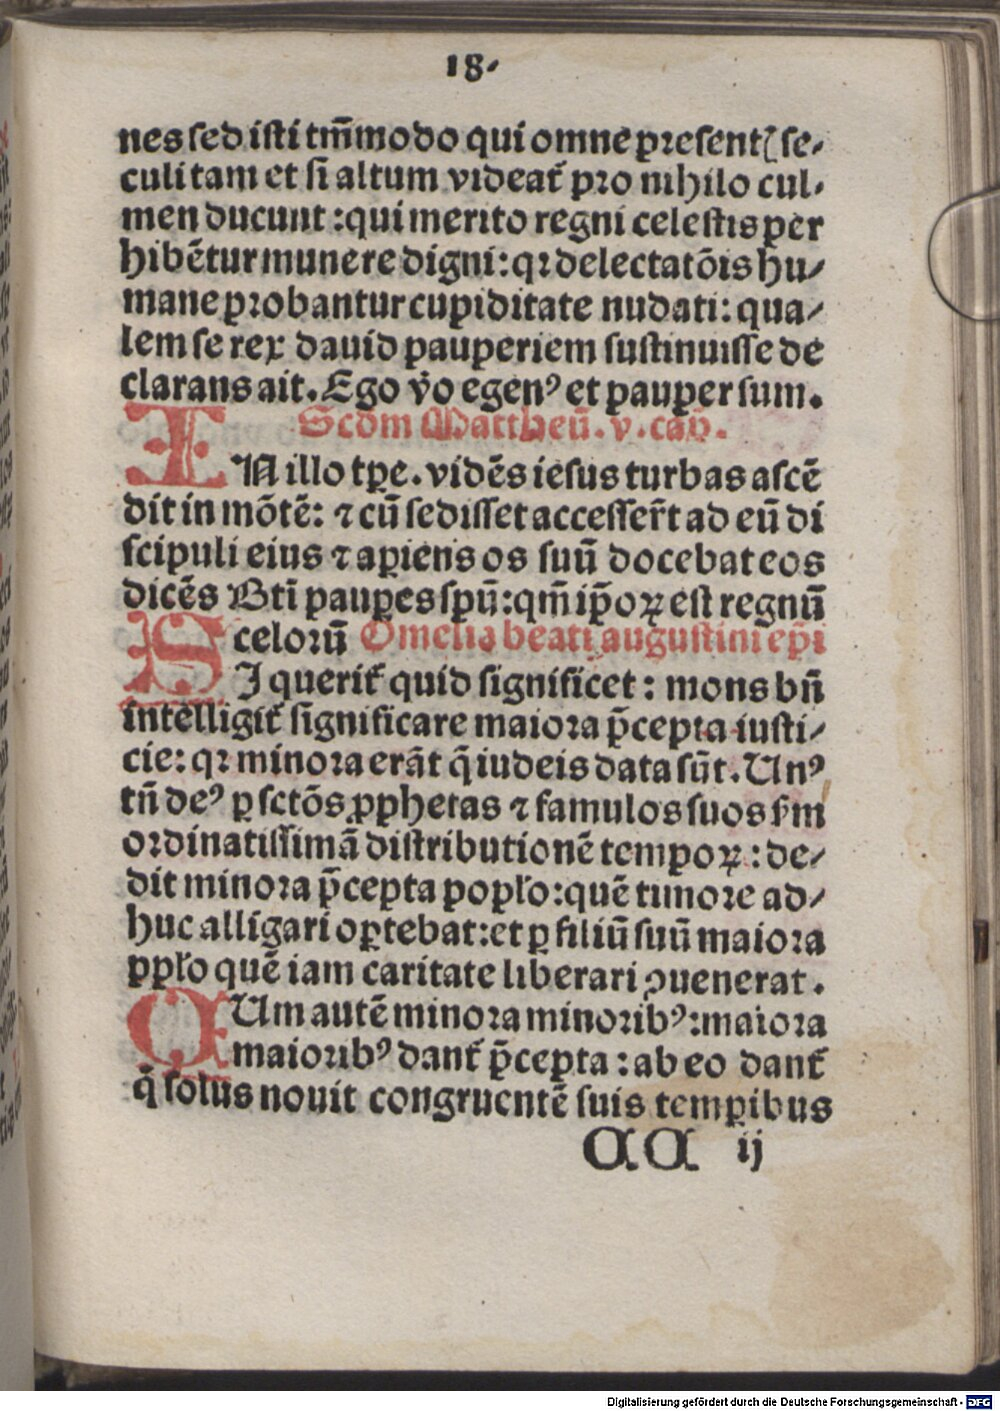 18.
nes sed isti tm̄modo qui omne presentꝭ se-
culi tam et si altum videat̄ pro nihilo cul-
men ducunt : qui merito regni celestis per
hibētur munere digni : qꝛ delectatōis hu/
mane probantur cupiditate nudati : qua/
lem se rex dauid pauperiem sustinuisse de
clarans ait. Ego v̄o egenꝰ et pauper sum.
Scd̄m Mattheū. v. cap̄.
IN illo tꝑe. vidēs iesus turbas ascē
dit in mōtē: ⁊ cū sedisset accesser̄t ad eū di
scipuli eius ⁊ apiens os suū docebat eos
dicēs Bti̅ pauꝑes sp̄u̅: qm̄ ip̄oꝝ est regnū
celorū Omelia beati augustini ep̄i
SI querit̄ quid significet : mons bn̄
intelligit̄ significare maiora p̄cepta iusti/
cie: qꝛ minora erāt q̄ iudeis data sūt. Unꝰ
tn̄ deꝰ ꝑ sctōs ꝓphetas ⁊ famulos suos ẜm
ordinatissimā distributionē tempoꝝ : de/
dit minora p̄cepta poplo: quē timore ad/
huc alligari oꝑtebat: et ꝑ filiū suū maiora
pplo quē iam caritate liberari ꝯuenerat.
QUm autē minora minoribꝰ: maiora
maioribꝰ dant̄ p̄cepta : ab eo dant̄
q̄ solus nouit congruentē suis tempibus
AA ij
Digitalisierung gefördert durch die Deutsche Forschungsgemeinschaft - DFG